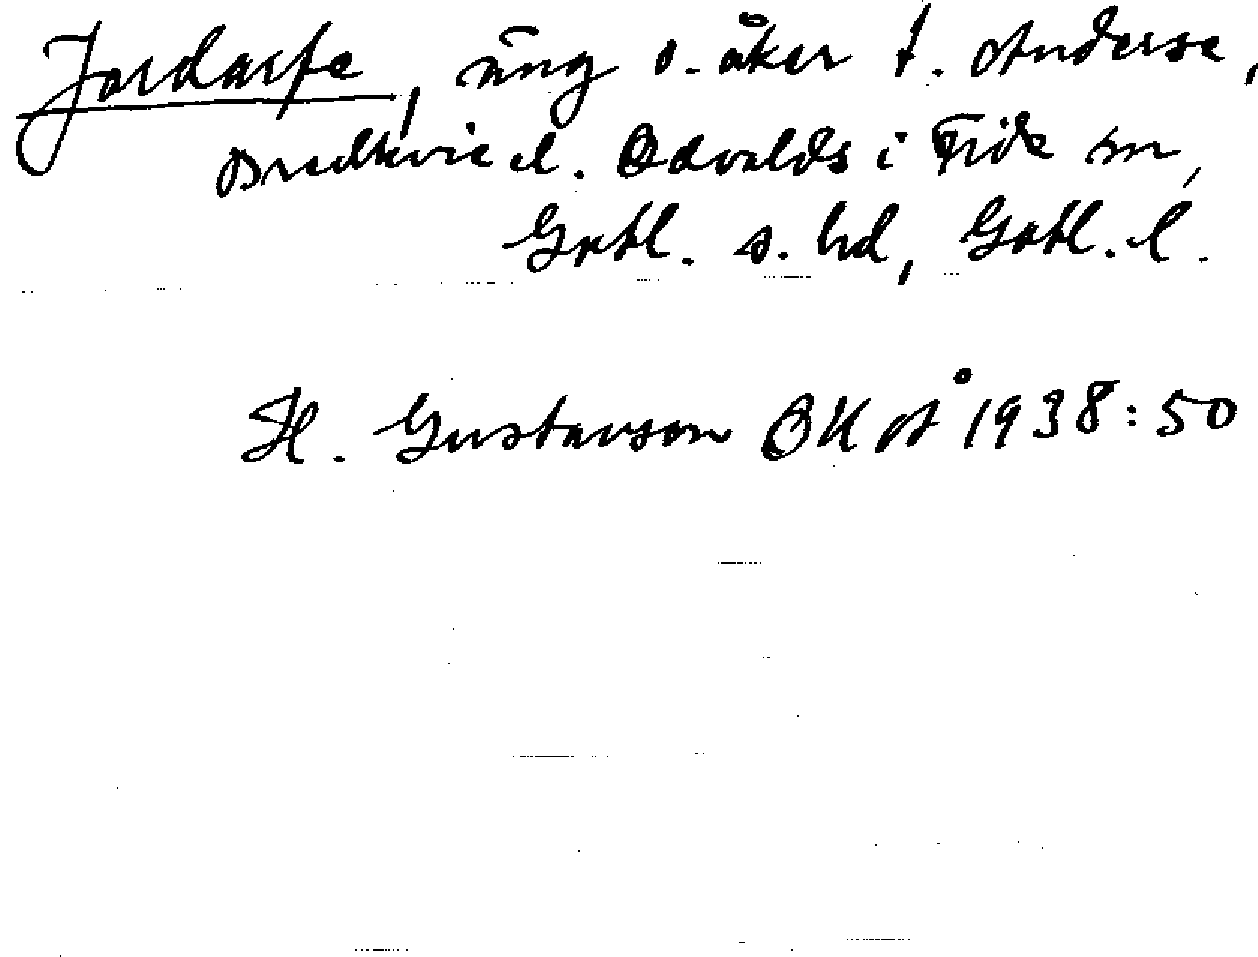 Jordarfe, äng o. åker t. Anderse,
Bredkvie el. Odvalds i Fide sn,
Gotl. s. hd, Gotl. l.
H. Gustavson OKA 1938:50